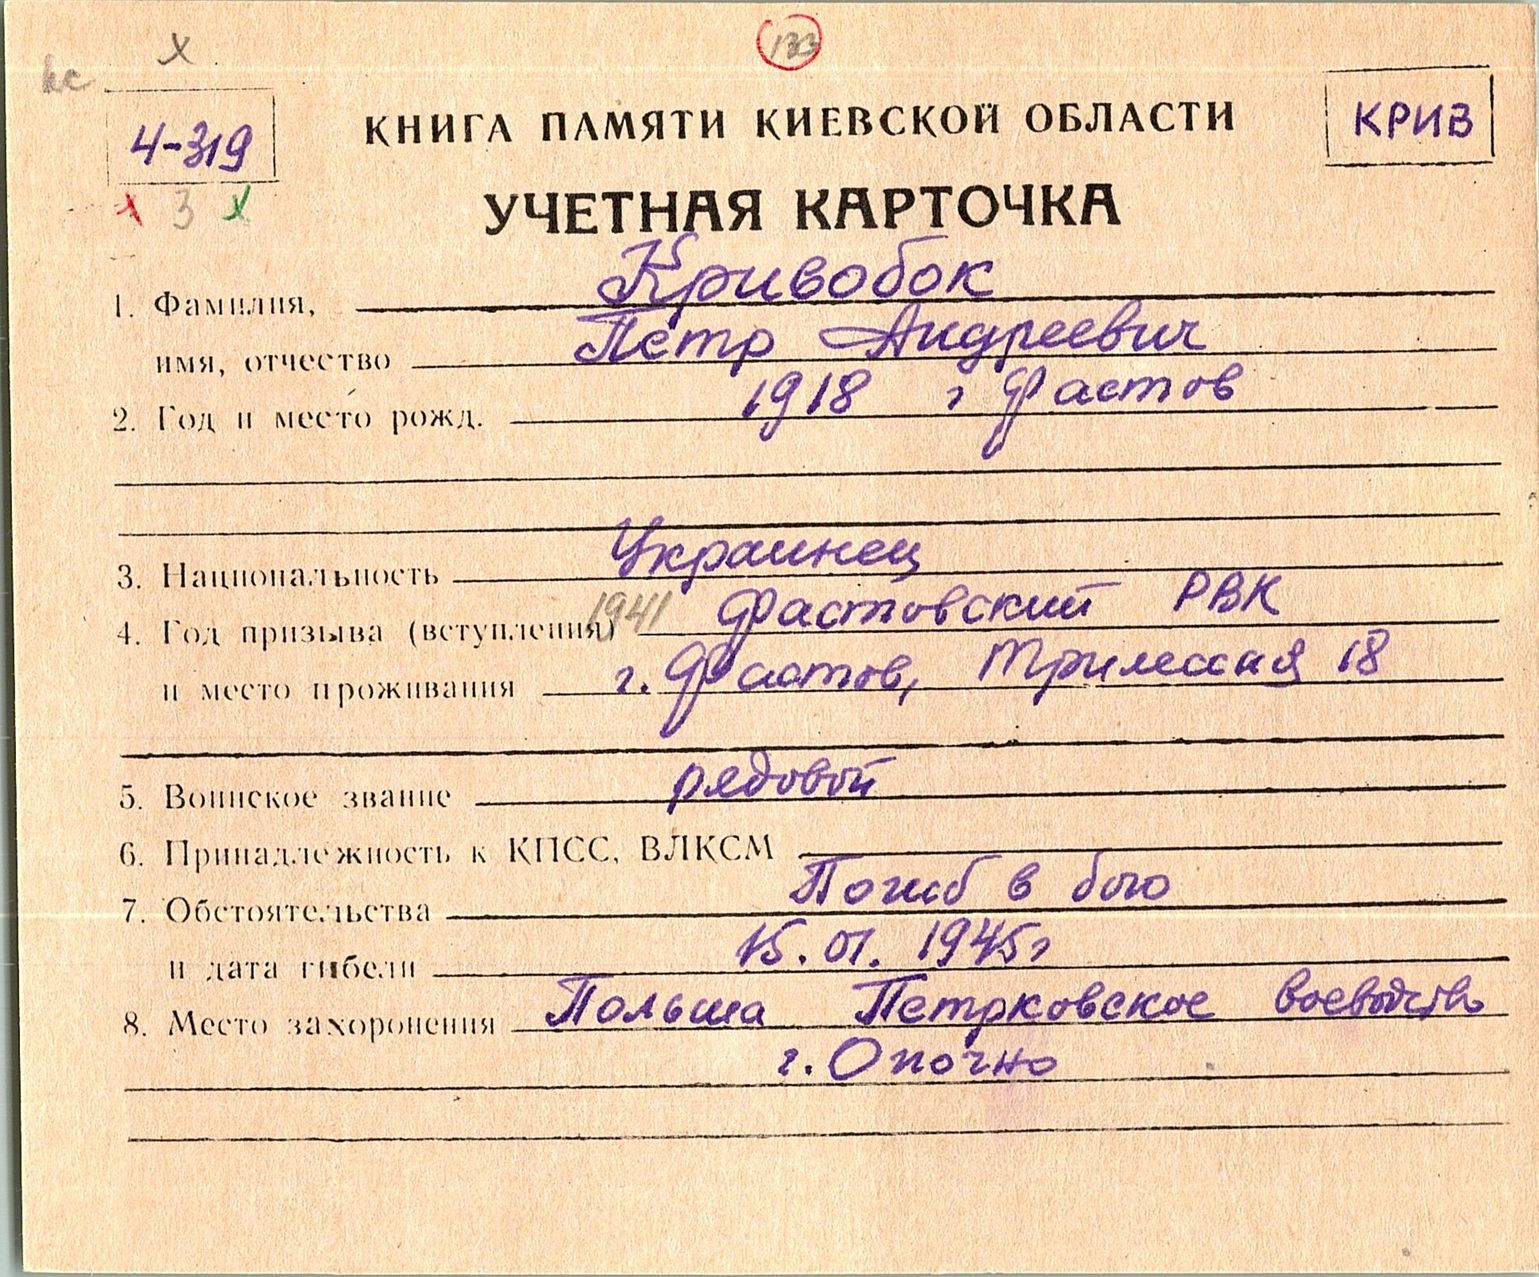 х
133
4-319
КНИГА ПАМЯТИ КИЕВСКОЙ ОБЛАСТИ
КРИВ
х 3 х
УЧЕТНАЯ КАРТОЧКА
1. Фамилия, Кривобок
имя, отчество Петр Андреевич
2. Год и место рожд. 1918 г Фастов
3. Национальность Украинец
4. Год призыва (вступления) 1941 Фастовский РВК
и место проживания г. Фастов, Трилесская 18
5. Воинское звание рядовой
6. Принадлежность к КПСС, ВЛКСМ
7. Обстоятельства Погиб в бою
и дата гибели 15.01.1945г
8. Место захоронения Польша Петрковское воеводство
г. Опочно